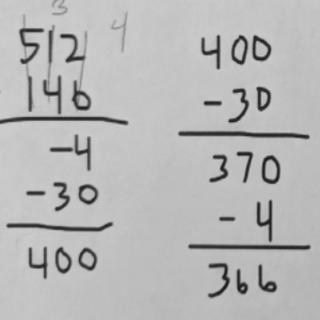 3
4
512
146
-4
-30
400
400
-30
370
-4
366